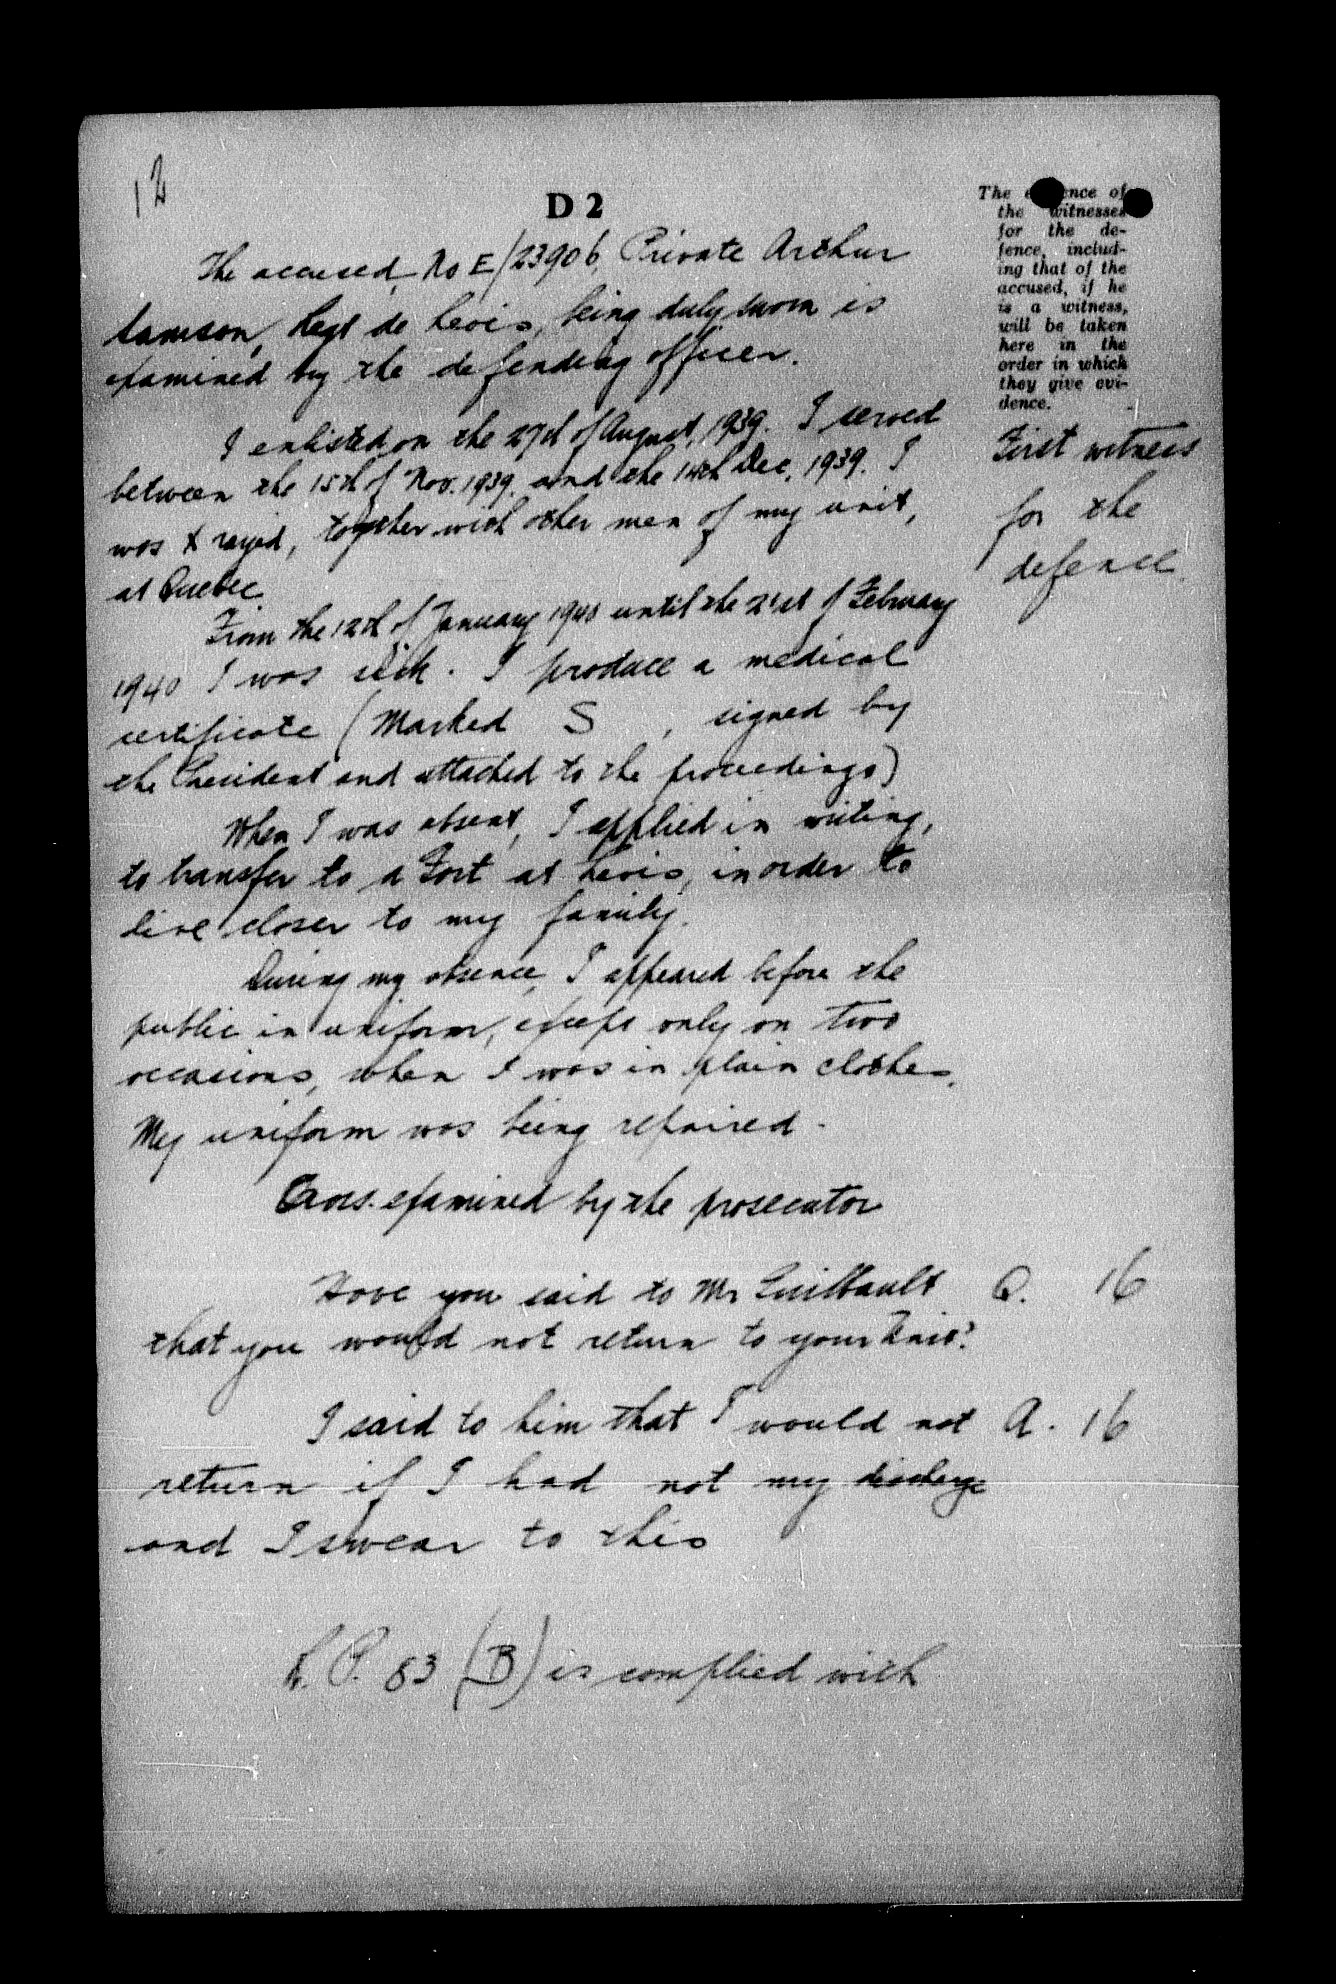 12
D 2
The evidence of
the witnesses
for the de-
fence, includ-
ing that of the
accused, if he
is a witness,
will be taken
here in the
order in which
they give evi-
dence.
The accused, No E/23906, Private Arthur
Samson, Regt de Levis, being duly sworn is
examined by the defending officer.
First witness
for the
defence.
I enlisted on the 27th of August, 1939. I served
between the 15th of Nov. 1939. and the 14th Dec. 1939. I
was X rayed, together with other men of my unit,
at Quebec.
From the 12th of January 1940 until the 21st of February
1940 I was sick. I produce a medical
certificate (Marked S , signed by
the President and attached to the proceedings)
When I was absent, I applied in writing,
to transfer to a Fort at Levis, in order to
live closer to my family.
During my absence, I appeared before the
public in uniform, except only on two
occasions, when I was in plain clothes.
My uniform was being repaired.
Cross-examined by the prosecutor
Have you said to Mr Guilbault Q. 16
that you would not return to your Unit?
I said to him that I would not A. 16
return if I had not my discharge
and I swear to this
R.P. 83 (B) is complied with